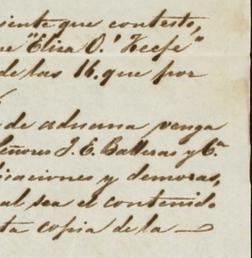 siente que contesto,
ue "Eliza O.' Keefe"
de las 16. que por
de aduana venga
Señores J. E. Balleras y Ca.
icaciones y demoras,
al sea el contenido
ta copia de la —